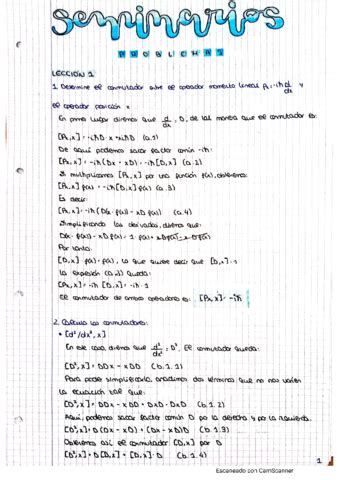 Seminarios
PROBLEMAS
LECCIÓN 1
1. Determine el conmutador entre el operador momento lineal Pₓ = -iħ d/dx y
el operador posición x
En primer lugar diremos que d/dx = D, de tal manera que el conmutador es:
[Pₓ,x] = -iħD·x + xiħD (a.1)
De aquí podemos sacar factor común -iħ:
[Pₓ,x] = -iħ(Dx - xD) = -iħ[D,x] (a.2)
Si multiplicamos [Pₓ,x] por una función f(x), obtenemos:
[Pₓ,x] f(x) = -iħ[D,x] f(x) (a.3)
Es decir:
[Pₓ,x] = -iħ(D(x·f(x)) - xD f(x)) (a.4)
Simplificando las derivadas, diremos que:
D(x·f(x)) - xD f(x) = 1·f(x) + xDf(x) - xDf(x)
Por tanto:
[D,x]·f(x) = f(x), lo que quiere decir que [D,x] = 1
La expresión (a.2) queda:
[Pₓ,x] = -iħ [D,x] = -iħ·1
El conmutador de ambos operadores es: [Pₓ,x] = -iħ
2. Calcula los conmutadores:
• [d²/dx², x]
En este caso, diremos que d²/dx² = D². El conmutador queda:
[D²,x] = DDx - xDD (b.1.1)
Para poder simplificarlo, añadimos dos términos que no nos varíen
la ecuación tal que:
[D²,x] = DDx - xDD + DxD - DxD (b.1.2)
Aquí, podemos sacar factor común D por la derecha y por la izquierda.
[D²,x] = D(Dx - xD) + (Dx - xD)D (b.1.3)
Obtenemos así el conmutador [D,x] por D
[D²,x] = D[D,x] + [D,x]·D (b.1.4)
1
Escaneado con CamScanner